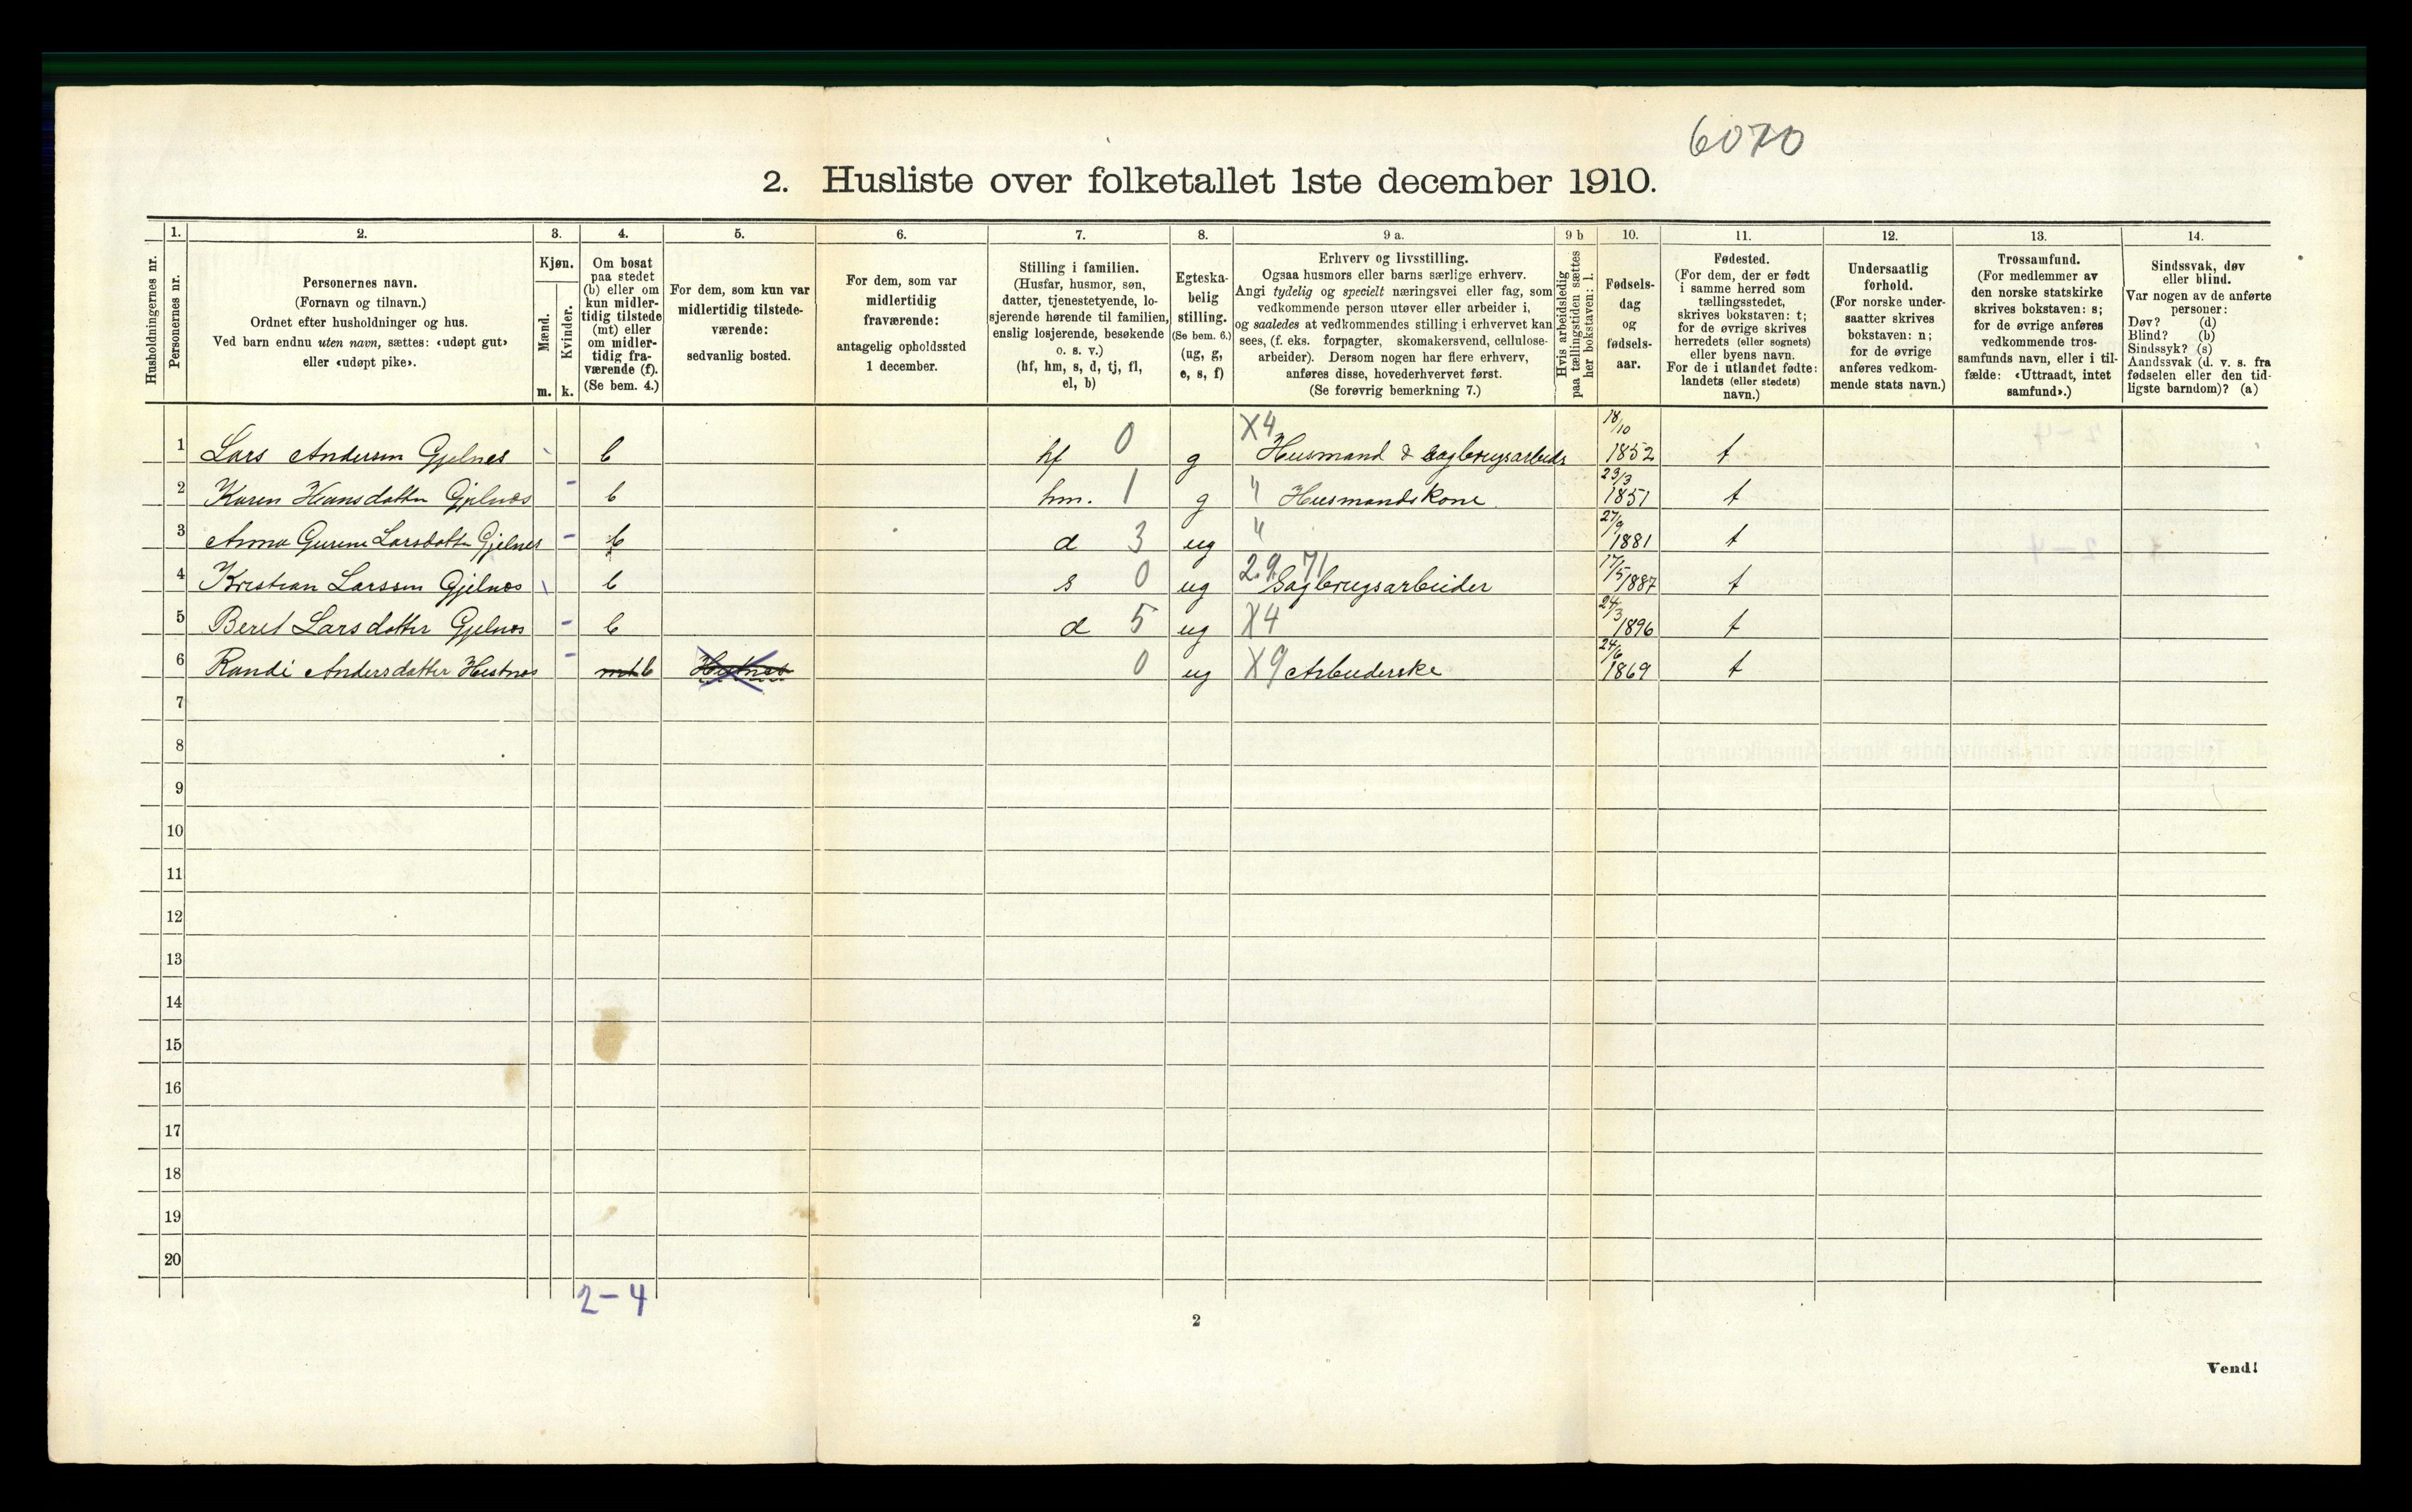 6070
2. Husliste over folketallet 1ste december 1910.
Husholdningernes nr.
1.
Personernes nr.
2.
Personernes navn.
(Fornavn og tilnavn.)
Ordnet efter husholdninger og hus.
Ved barn endnu uten navn, sættes: «udøpt gut»
eller «udøpt pike».
3.
Kjøn.
Mænd.
Kvinder.
m. k.
4.
Om bosat
paa stedet
(b) eller om
kun midler-
tidig tilstede
(mt) eller
om midler-
tidig fra-
værende (f).
(Se bem. 4.)
5.
For dem, som kun var
midlertidig tilstede-
værende:
sedvanlig bosted.
6.
For dem, som var
midlertidig
fraværende:
antagelig opholdssted
1 december.
7.
Stilling i familien.
(Husfar, husmor, søn,
datter, tjenestetyende, lo-
sjerende hørende til familien,
enslig losjerende, besøkende
o. s. v.)
(hf, hm, s, d, tj, fl,
el, b)
8.
Egteska-
belig
stilling.
(Se bem. 6.)
(ug, g,
e, s, f)
9 a.
Erhverv og livsstilling.
Ogsaa husmors eller barns særlige erhverv.
Angi tydelig og specielt næringsvei eller fag, som
vedkommende person utøver eller arbeider i,
og saaledes at vedkommendes stilling i erhvervet kan
sees, (f. eks. forpagter, skomakersvend, cellulose-
arbeider). Dersom nogen har flere erhverv,
anføres disse, hovederhvervet først.
(Se forøvrig bemerkning 7.)
9 b
Hvis arbeidsledig
paa tællingstiden sættes
her bokstaven: l.
10.
Fødsels-
dag
og
fødsels-
aar.
11.
Fødested.
(For dem, der er født
i samme herred som
tællingsstedet,
skrives bokstaven: t;
for de øvrige skrives
herredets (eller sognets)
eller byens navn.
For de i utlandet fødte:
landets (eller stedets)
navn.)
12.
Undersaatlig
forhold.
(For norske under-
saatter skrives
bokstaven: n;
for de øvrige
anføres vedkom-
mende stats navn.)
13.
Trossamfund.
(For medlemmer av
den norske statskirke
skrives bokstaven: s;
for de øvrige anføres
vedkommende tros-
samfunds navn, eller i til-
fælde: «Uttraadt, intet
samfund».)
14.
Sindssvak, døv
eller blind.
Var nogen av de anførte
personer:
Døv? (d)
Blind? (b)
Sindssyk? (s)
Aandssvak (d. v. s. fra
fødselen eller den tid-
ligste barndom)? (a)
1 Lars Andersen Gjelnes b hf 0 g X4 Husmand & Sagbrugsarbeids 18/10 1852 t
2 Karen Hansdatter Gjelnes - b hm. 1 g " Husmandskone 23/3 1851 t
3 Anna Gurine Larsdatter Gjelnes - b d 3 ug " 27/9 1881 t
4 Kristian Larssen Gjelnes b s 0 ug 2.9.71 Sagbrugsarbeider 17/5 1887 t
5 Beret Larsdatter Gjelnes - b d 5 ug X4 24/3 1896 t
6 Randi Andersdatter Hestnes - mt b Hestnes 0 ug X9 Arbeiderske 24/6 1869 t
7
8
9
10
11
12
13
14
15
16
17
18
19
20
2-4
2
Vend!